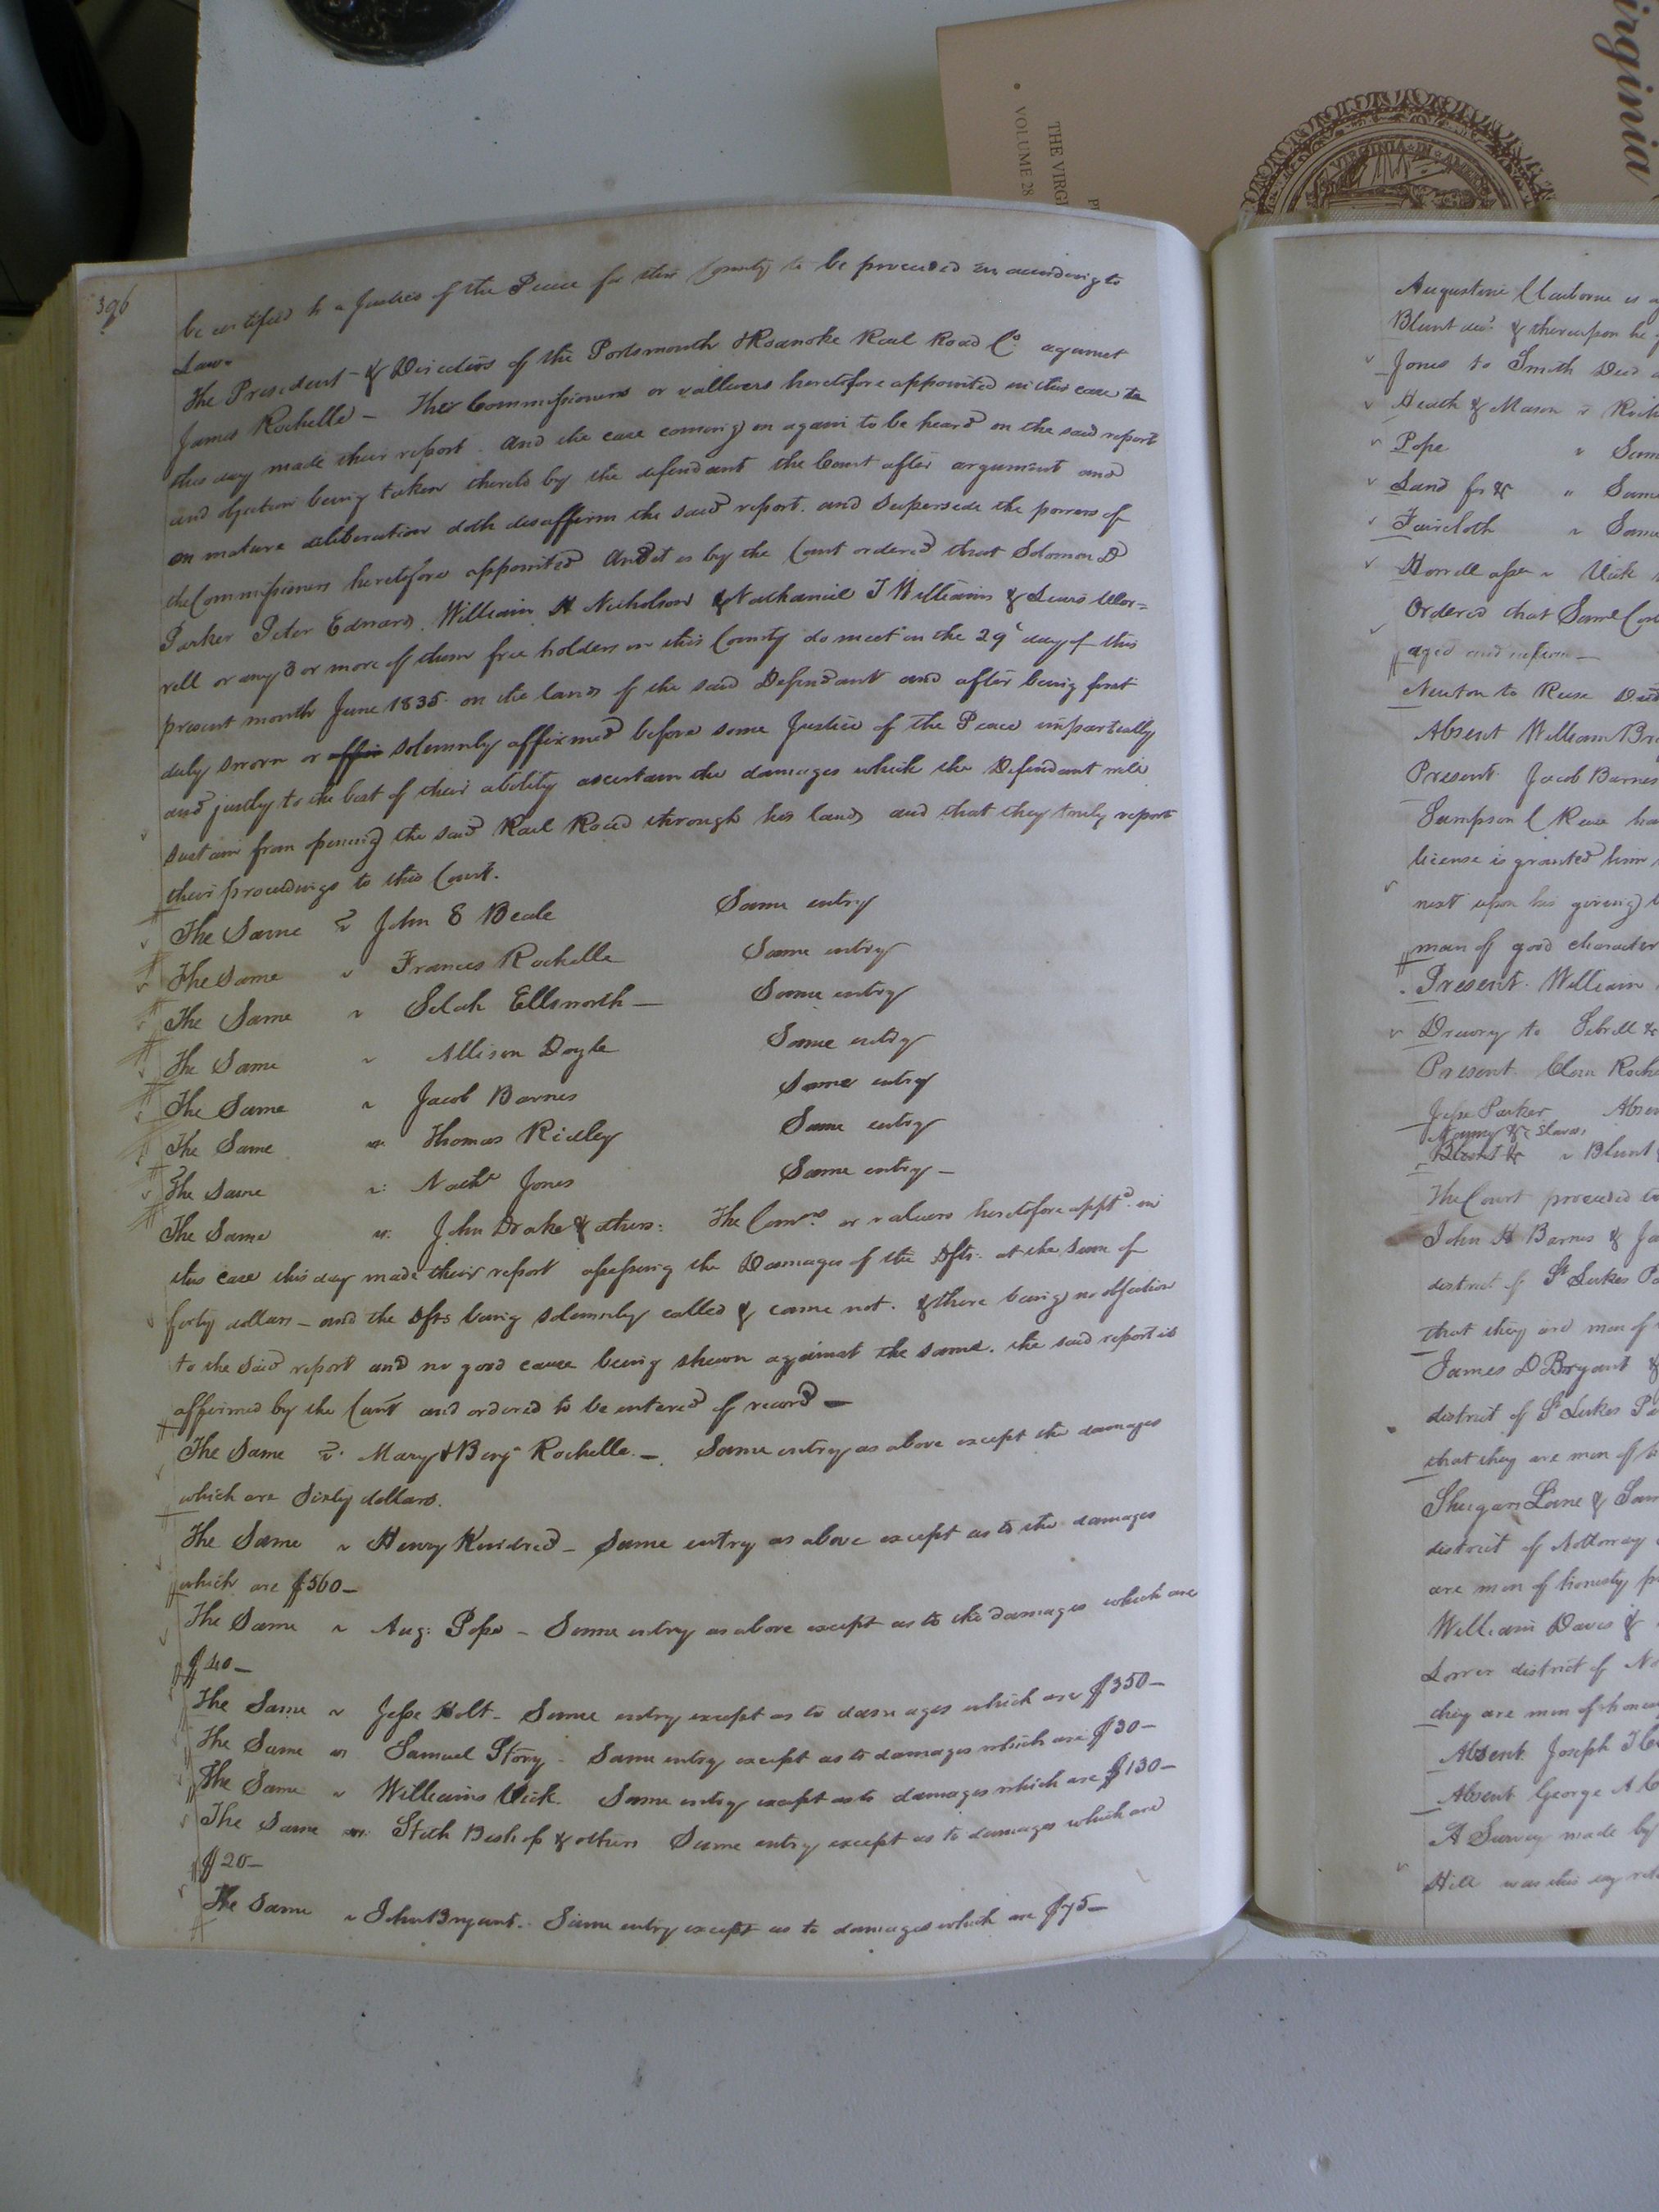 irginia
VIRGINIA IN AMER
THE VIRGI
VOLUME 28
396
be certified to a Justice of the Peace for this County to be proceeded in according to
Law.
The President & Directors of the Portsmouth & Roanoke Rail Road Co. against
James Rochelle - The Commissioners or valluers heretofore appointed in this case
this day made their report. And the case coming on again to be heard on the said report
and objection being taken thereto by the defendant the Court after argument and
on mature deliberation doth disaffirm the said report. and supersede the powers of
the Commissioners heretofore appointed And it is by the Court ordered that Solomon D
Parker Peter Edwards, William H Nicholson & Nathaniel T Williams & Lewis Wor=
rell or any 3 or more of them free holders in this County do meet on the 29th day of this
present month June 1835. on the lands of the said Defendant and after being first
duly sworn or solemnly affirmed before some Justice of the Peace impartially
and justly to the best of their ability ascertain the damages which the Defendant will
sustain from opening the said Rail Road through his lands and that they truly report
their proceedings to this Court.
The Same vs John E Beale Same entry
The Same v Frances Rochelle Same entry
The Same v Selah Ellsworth - Same entry
The Same v Allison Doyle Same entry
The Same v Jacob Barnes Same entry
The Same vs Thomas Ridley Same entry
The Same v: Nathl Jones Same entry -
The Same vs. John Drake & others: The Comrs. or valuers heretofore apptd. in
this case this day made their report assessing the Damages of the Dfts. at the sum of
forty dollars - and the Dfts being solemnly called & came not. & there being no objection
to the said report and no good cause being shewn against the same. the said report is
affirmed by the Court and ordered to be entered of record -
The Same vs. Mary & Benj. Rochelle. - Same entry as above except the damages
which are Sixty dollars.
The Same v Henry Kindred - Same entry as above except as to the damages
which are $560 -
The Same v Aug: Pope - Same entry as above except as to the damages which are
$40 -
The Same v Jesse Holt - Same entry except as to damages which are $350 -
The Same vs Samuel Story - Same entry except as to damages which are $30 -
The Same v Williams Vick. Same entry except as to damages which are $130 -
The Same vs. Stith Bishop & others Same entry except as to damages which are
$20 -
The Same v John Bryant. Same entry except as to damages which are $75 -
Augustine Claiborne is
Blunt decd. & thereupon he
Jones to Smith Deed
Heath & Mason v
Pope " Same
Land for &c " Same
Faircloth v Same
Horrell assee v Vick
Ordered that Saml
aged and infirm -
Newton to Reese Deed
Absent William
Present. Jacob Barnes
Sampson C Reese ha
license is granted him
next upon his giving
man of good character
Present. William
Drewry to Sebrell &
Present. Clem Roche
Jesse Parker Absen
Nanny &c Slaves
v Blunt
The Court proceeded to
John H Barnes & Ja
district of St. Lukes Pa
that they are men of
James D Bryant &
district of St Lukes Pa
that they are men of
Shugars Lane & Sam
district of Nottoway
are men of honesty pr
William Davis &
Lower district of No
they are men of hones
Absent. Joseph T
Absent George A
A Survey made by
Hill was this day ret